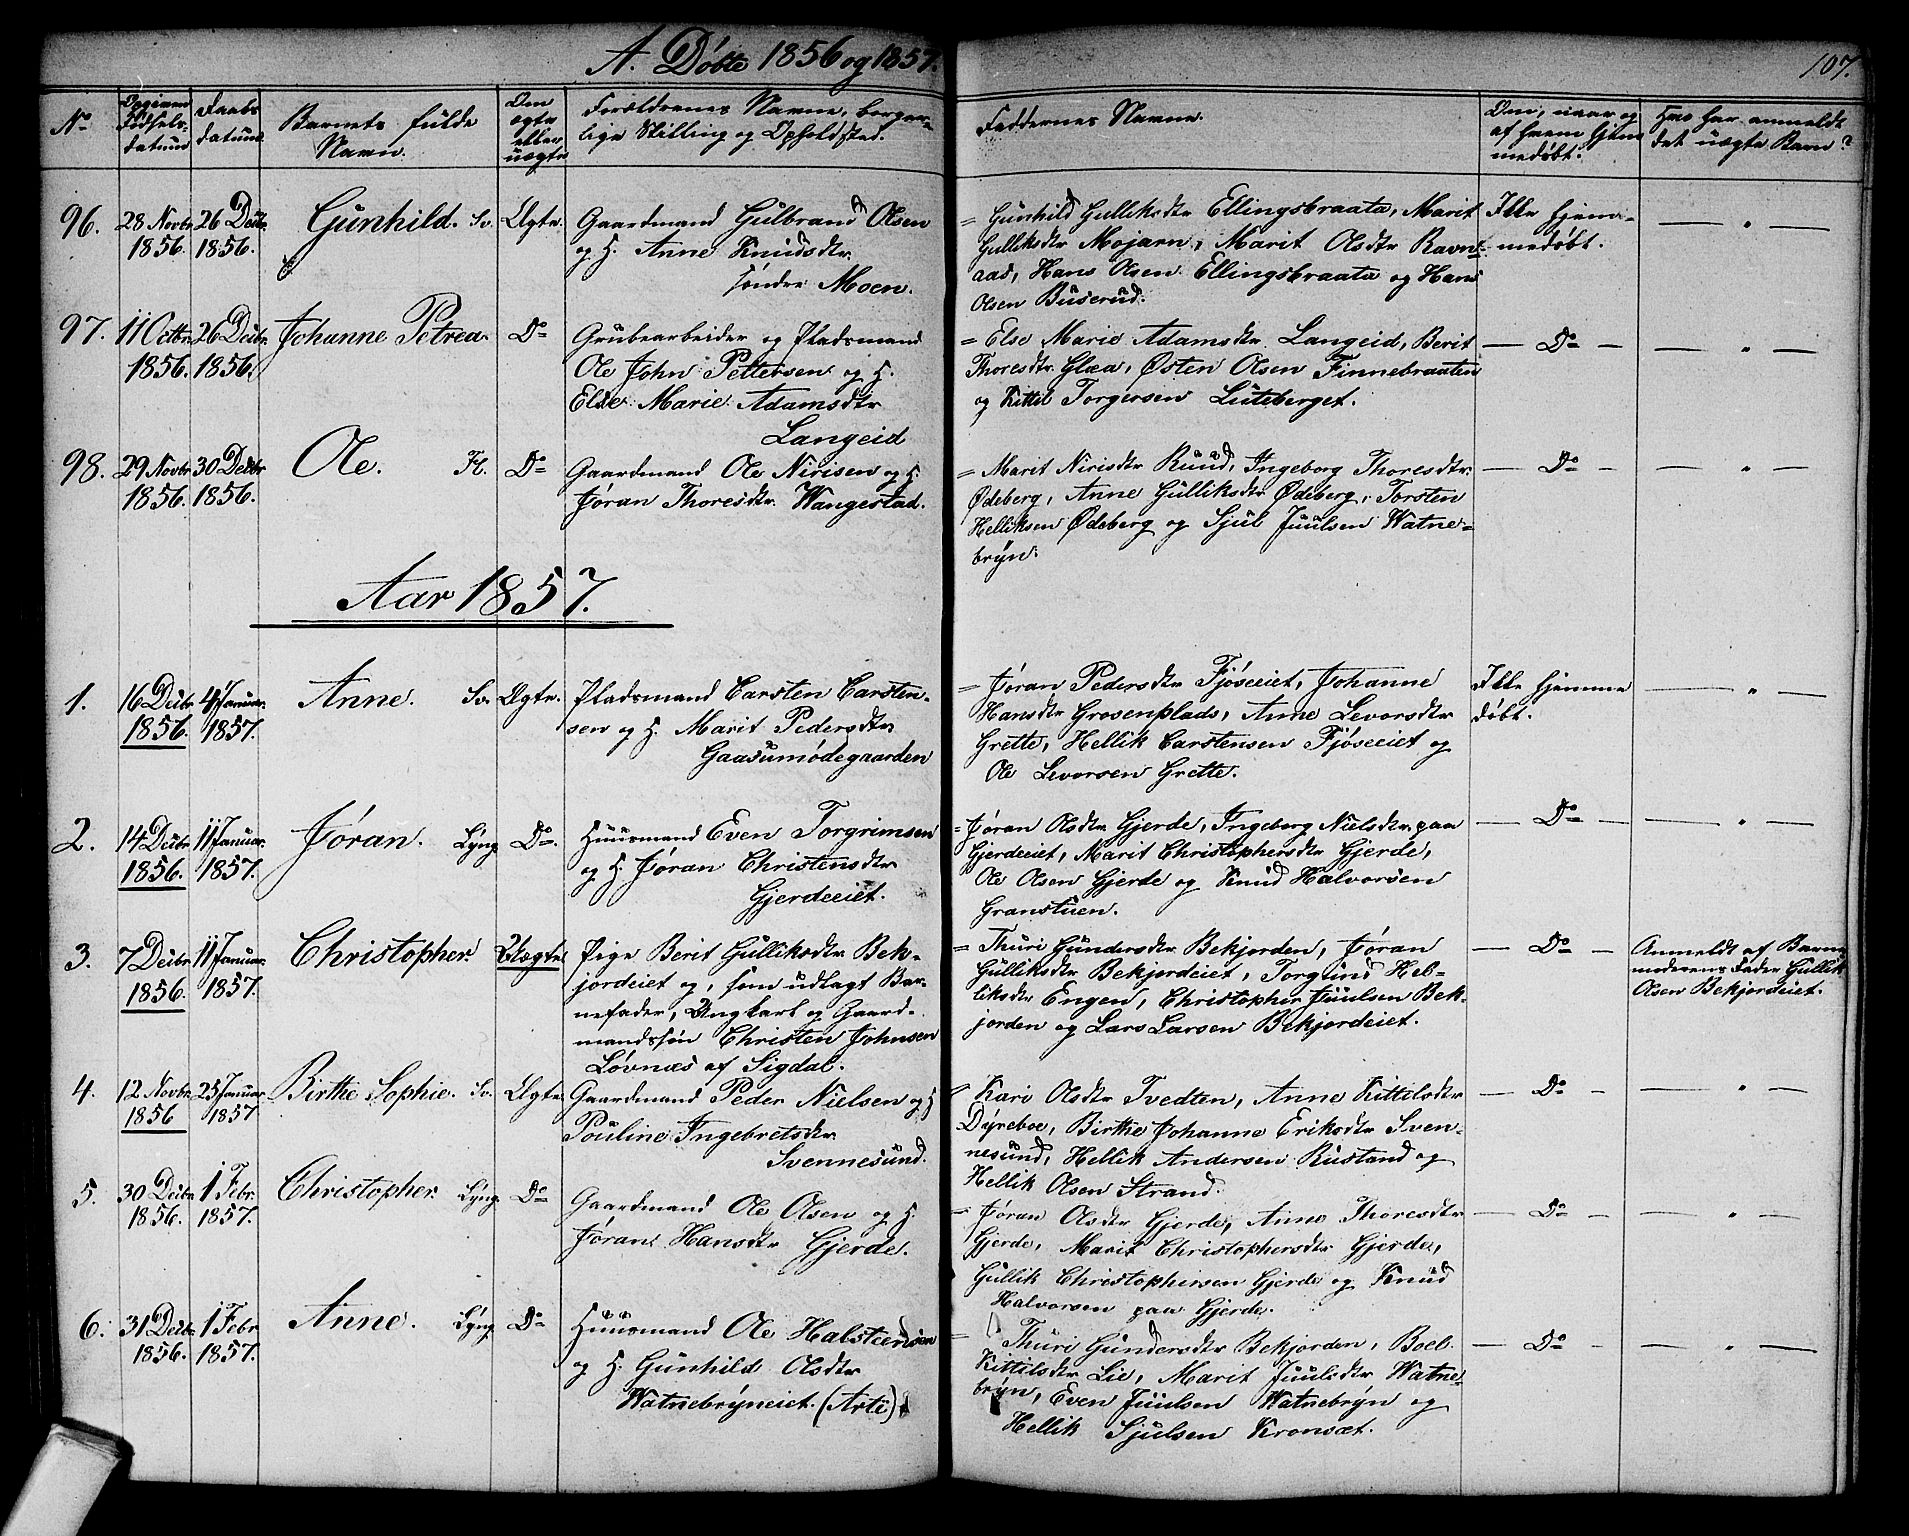 A. Døbte 1856 og 1857.
107.
No
Opgiven Fødsels-datum
Daabs datum
Barnets fulde Navn.
Om ægte eller uægte
Forældrenes Navne, borger-
lige Stilling og Opholdssted.
Faddernes Navne.
Om, naar og af hvem hjem-
medøbt.
Hvo har anmeldt
det uægte Barn?
96. 28 Novbr 1856. 26 Decbr. 1856. Gunhild. Sv. Ægte.
Gaardmand Gulbrand Olsen
og H. Anne Knudsdtr
søndre Moen.
= Gunhild Gulliksdtr Ellingsbraata, Marit
Gulliksdtr Mojarn, Marit Olsdtr Ravn-
aas, Hans Olsen Ellingsbraata og Hans
Olsen Buserud.
Ikke hjem-
medøbt.
— " —
97. 11 Octbr. 1856. 26 Decbr. 1856. Johanne Petrea. Do
Grubearbeider og Pladsmand
Ole John Pettersen og H.
Else Marie Adamsdtr
Langeid
= Else Marie Adamsdtr. Langeid, Berit
Thoresdtr Glæa, Østen Olsen Finnebraaten
og Kittil Torgersen Luteberget.
— Do —
— " —
98. 29 Novbr 1856. 30 Decbr 1856. Ole. Fl. Do
Gaardmand Ole Nirisen og H.
Jøran Thoresdtr. Wangestad.
= Marit Nirisdtr Ruud, Ingeborg Thoresdtr.
Ødeberg, Anne Gulliksdtr Ødeberg, Torsten
Helliksen Ødeberg og Sjul Juulsen Watne-
bryn.
— Do —
— " —
Aar 1857.
1. 16 Decbr 1856. 4 Januar. 1857. Anne. Sv. Ægte.
Pladsmand Carsten Carsten-
sen og H. Marit Pedersdtr
Gaasumødegaarden
= Jøran Pedersdtr Fjøseeiet, Johanne
Hansdtr Grosenplads, Anne Levorsdtr
Grette, Hellik Carstensen Fjøseeiet og
Ole Levorsen Grette.
Ikke hjemme
døbt.
— " —
2. 14 Decbr 1856. 11 Januar. 1857. Jøran. Lyng. Do.
Huusmand Even Torgrimsen
og H. Jøran Christensdtr
Gjerdeeiet.
= Jøran Olsdtr Gjerde, Ingeborg Nielsdtr paa
Gjerdeeiet, Marit Christophersdtr Gjerde,
Ole Olsen Gjerde og Knud Halvorsen
Granstuen.
— Do —
— " —
3. 7 Decbr 1856. 11 Januar. 1857. Christopher. Uægte.
Pige Berit Gulliksdtr Bek-
jordeiet og, som udlagt Bar-
nefader, Ungkarl og Gaard-
mandssøn Christen Johnsen
Løvnæs af Sigdal.
= Thuri Gundersdtr Bekjorden, Jøran
Gulliksdtr Bekjordeiet, Torgund Hel-
liksdtr Engen, Christopher Juulsen Bek-
jorden og Lars Larsen Bekjordeiet.
— Do —
Anmeldt af Barne-
moderens Fader Gullik
Olsen Bekjordeiet.
4. 12 Novbr. 1856 25 Januar 1857 Birthe Sophie. Sv. Ægte.
Gaardmand Peder Nielsen og H
Pouline Ingebretsdtr
Svennesund.
= Kari Olsdtr Tvedten, Anne Kittilsdtr
Dyreboe, Birthe Johanne Eriksdtr Sven-
nesund, Hellik Andersen Rustand og
Hellik Olsen Strand.
— Do —
— " —
5. 30 Decbr 1856. 1 Febr. 1857. Christopher. Lyng. Do
Gaardmand Ole Olsen og H.
Jøran Hansdtr Gjerde.
= Jøran Olsdtr Gjerde, Anne Thoresdtr
Gjerde, Marit Christophersdtr Gjerde,
Gullik Christophersen Gjerde og Knud
Halvorsen paa Gjerde.
— Do —
— " —
6. 31 Decbr 1856. 1 Febr 1857. Anne. Lyng. Do
Huusmand Ole Halsteensen
og H. Gunhild Olsdtr
Watnebryneiet. (Arte)
= Thuri Gundersdtr Bekjorden, Boel
Kittilsdtr Lie, Marit Juulsdtr Watne-
bryn, Even Juulsen Watnebryn og
Hellik Sjulsen Kronsæt.
— Do —
— " —